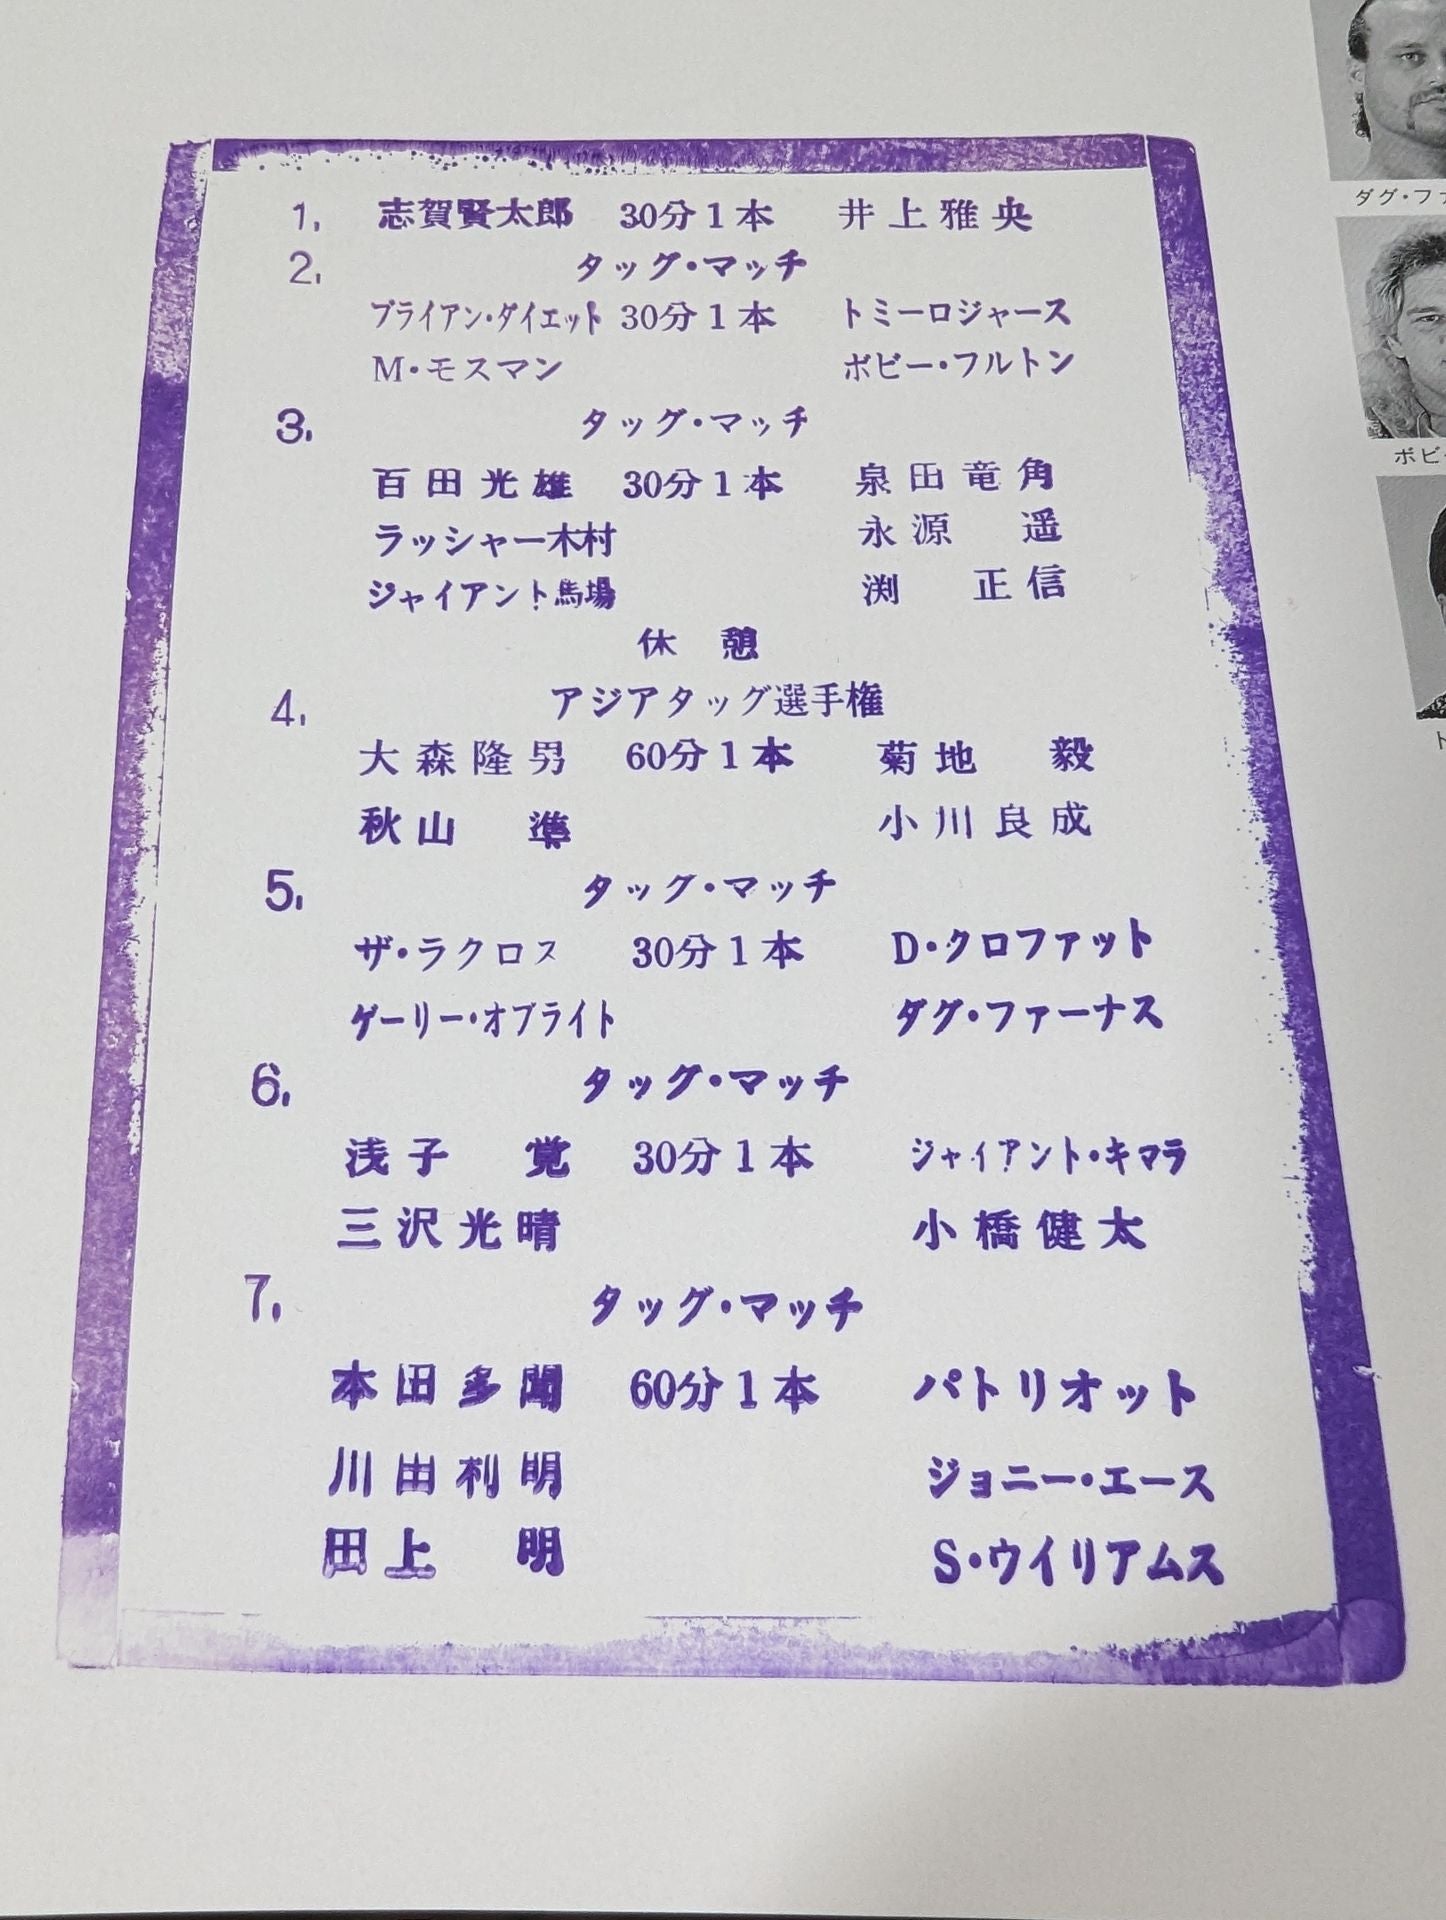 1. 志賀賢太郎 30分1本 井上雅央
2. タッグ・マッチ
ブライアン・ダイエット 30分1本 トミーロジャース
M・モスマン ボビー・フルトン
3. タッグ・マッチ
百田光雄 30分1本 泉田竜角
ラッシャー木村 永源 遥
ジャイアント馬場 渕 正信
休憩
4. アジアタッグ選手権
大森隆男 60分1本 菊地 毅
秋山 準 小川良成
5. タッグ・マッチ
ザ・ラクロス 30分1本 D・クロファット
ゲーリー・オブライト ダグ・ファーナス
6. タッグ・マッチ
浅子 覚 30分1本 ジャイアント・キマラ
三沢光晴 小橋健太
7. タッグ・マッチ
本田多聞 60分1本 パトリオット
川田利明 ジョニー・エース
田上 明 S・ウイリアムス
ダグ・ファ
ボビ